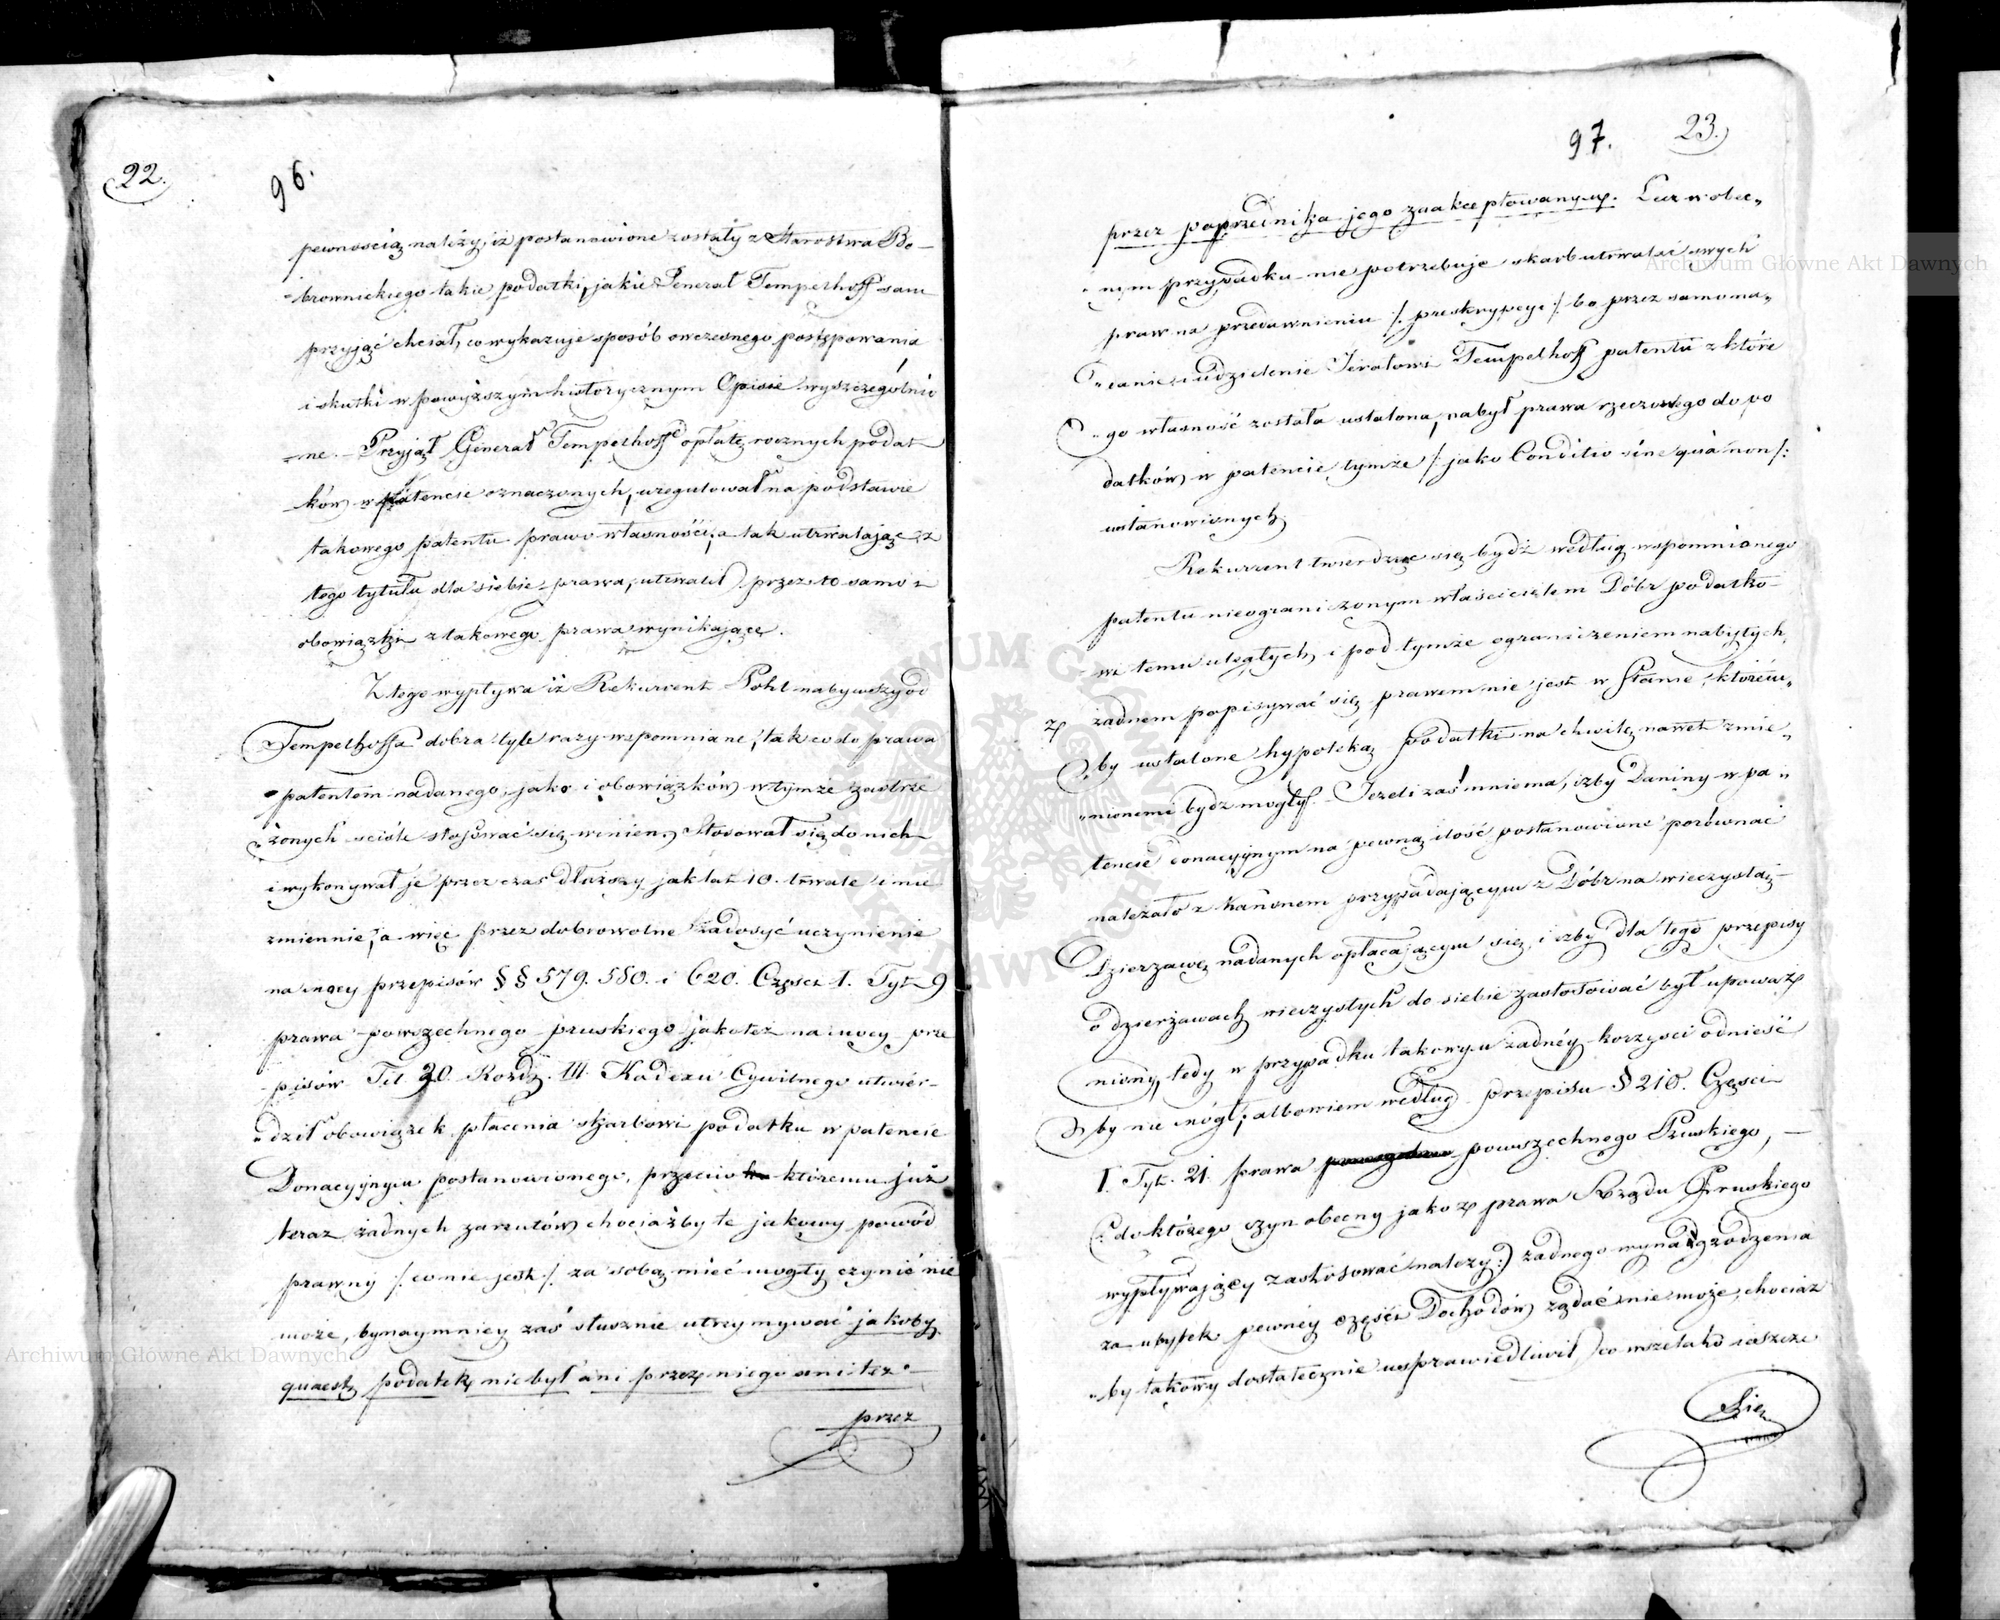 22.
96.
pewnością należy, iż postanowione zostały z Starostwa Bo-
"brownickiego takie podatki, jakie Generał Tempelhoff sam
przyjąć chciał, co wykazuje sposób owczesnego postępowania
i skutki w powyższym historycznym Opisie wyszczególnio
"ne. – Przyjął Generał Tempelhoff opłatę rocznych podat
ków w patencie oznaczonych, uregulował na podstawie
takowego patentu prawo własności, a tak utrwalając z
tego tytułu dla siebie prawa, utrwalił przez to samo i
obowiązki z takowego prawa wynikające.
Z tego wypływa iż Rekurrent Pohl nabywszy od
Tempelhoffa dobra tyle razy wspomniane, tak co do prawa
patentem nadanego, jako i obowiązków w tymże zastrze
"żonych ściśle stosować się winien, Stosował się do nich
i wykonywał je przez czas dłuższy jak lat 10. trwale i nie
zmiennie, a więc przez dobrowolne zadosyć uczynienie
na mocy przepisów §§ 579. 580. i 620. Części 1. Tyt. 9
prawa powszechnego pruskiego jakoteż na mocy prze
pisów Tit. 20. Rozdz. III. Kodexu Cywilnego utwier-
"dził obowiązek płacenia skarbowi podatku w patencie
Donacyjnym postanowionego, przeciw któremu już
teraz żadnych zarzutów chociażby te jakowy powód
prawny /: co nie jest :/ za sobą mieć mogły czynić nie
może, bynaymniey zaś słusznie utrzymywać jakoby
quaest. podatek nie był ani przez niego ani też
przez
97.
23.
przez poprzednika jego zaakceptowanym. Lecz w obec"
"nym przypadku nie potrzebuje skarb utrwalać swych
praw na przedawnieniu /: preskrypcyi :/ bo przez samo na"
"danie i udzielenie Jenerałowi Tempelhoff patentu z które
"go własność została ustalona, nabył prawa rzeczowego do po
datków w patencie tymże /: jako Conditio sine qua non :/
ustanowionych.
Rekurrent twierdząc się bydź według wspomnionego
patentu nieograniczonym właścicielem Dóbr podatko-
wi temu uległych, i pod tymże ograniczeniem nabytych,
żadnem popisywać się prawem nie jest w stanie, którém"
"by ustalone hypoteką podatki na chwilę nawet zmie"
"nionemi bydz mogły. – Jeżeli zaś mniema, iżby Daniny w pa"
tencie donacyjnym na pewną ilość postanowione porównać
należało z Kanonem przypadającym z Dóbr na wieczystą
Dzierzawę nadanych opłacającym się, i iżby dla tego przepisy
o dzierżawach wieczystych do siebie zastosować był upoważ
niony, tedy w przypadku takowym żadnéy korzyści odnieść
by nie mógł; albowiem według przepisu § 210. Części
I. Tyt. 21. prawa powszechnego Pruskiego, –
(: do którego czyn obecny jako z prawa Rządu Pruskiego
wypływający zastosować należy :) żadnego wynadgrodzenia
za ubytek pewnéy części Dochodów żądać nie może, chociaż
"by takowy dostatecznie usprawiedliwił, co wszelako ieszcze